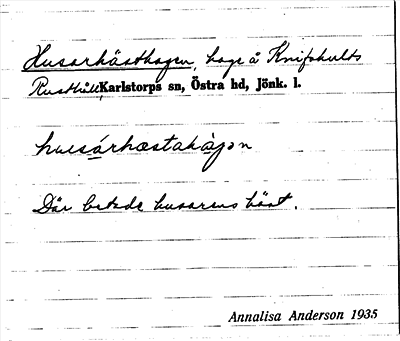 Husarhästhagen, hage å Knifshults
Rusthåll, Karlstorps sn, Östra hd, Jönk. l.
husárhæstahàgən
Där betade husarens häst.
Annalisa Anderson 1935